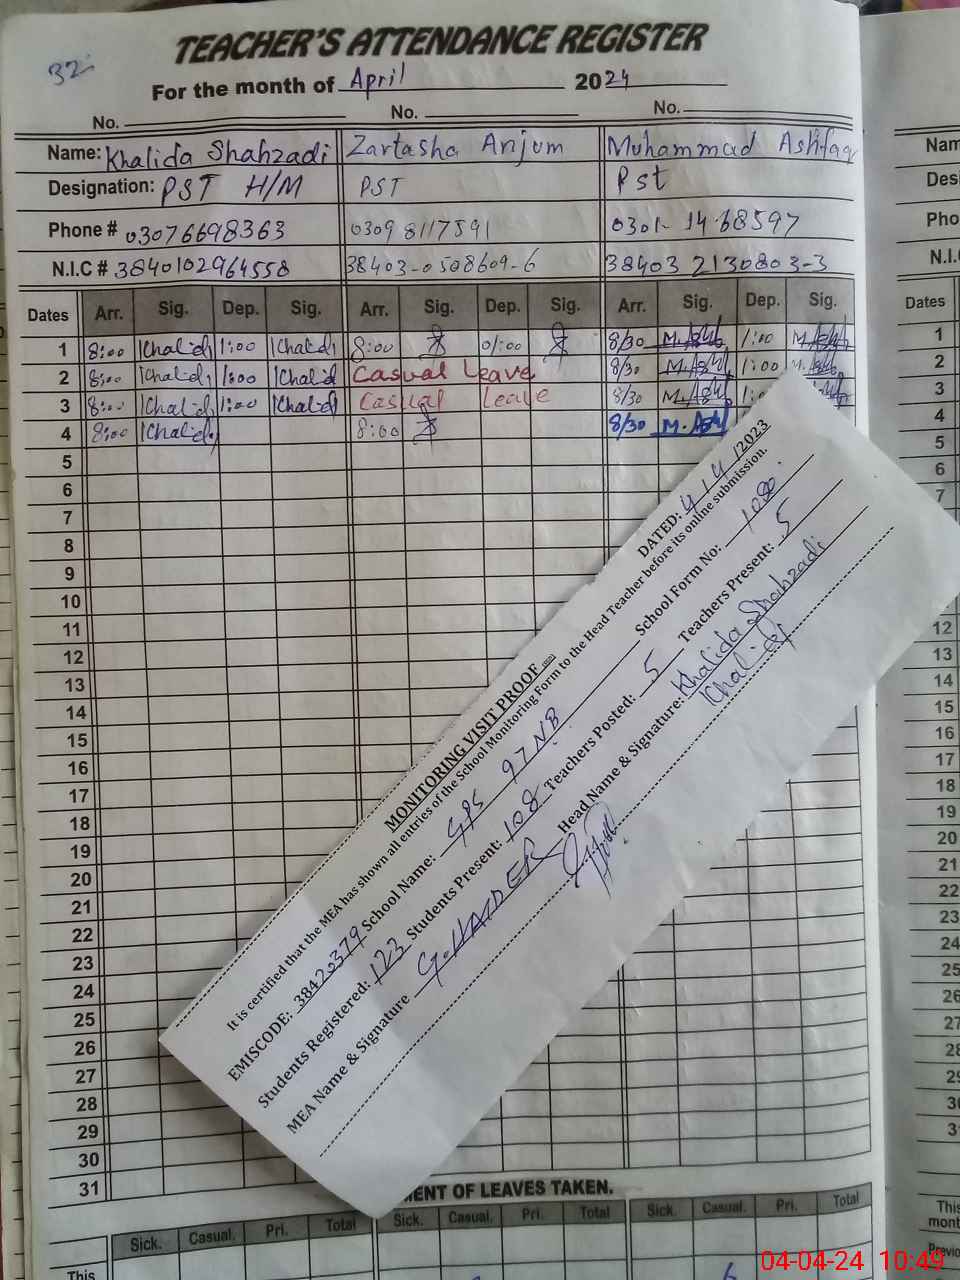 32
TEACHER'S ATTENDANCE REGISTER
For the month of April 2024
No. No. No.
Name: Khalida Shahzadi Zartasha Anjum Muhammad Ashfaq
Designation: PST H/M PST Pst
Phone # 03076698363 0309 8117591 0301- 14 68597
N.I.C # 3840102964558 38403-0508609-6 38403 2130803-3
Dates Arr. Sig. Dep. Sig. Arr. Sig. Dep. Sig. Arr. Sig. Dep. Sig.
1 8:00 Khalid 1:00 Khalid 8:00 01:00 8/30 1:00
2 8:00 Khalid 1:00 Khalid Casual Leave 8/30 1:00
3 8:00 Khalid 1:00 Khalid Casual Leave 8/30
4 8:00 Khalid 8:00 8/30
5
6
7
8
9
10
11
12
13
14
15
16
17
18
19
20
21
22
23
24
25
26
27
28
29
30
31
MONITORING VISIT PROOF DATED: 4/4/2023
It is certified that the MEA has shown all entries of the School Monitoring Form to the Head Teacher before its online submission.
EMISCODE: 38420379 School Name: GPS 97 NB School Form No:
Students Registered: 123 Students Present: 108 Teachers Posted: 5 Teachers Present: 5
MEA Name & Signature G.HAIDER Head Name & Signature: Khalida Shahzadi
Khalid
ENT OF LEAVES TAKEN.
Sick. Casual. Pri. Total Sick. Casual. Pri. Total Sick. Casual. Pri. Total
This
6
Nam
Desi
Pho
N.I.
Dates
1
2
3
4
5
6
7
12
13
14
15
16
17
18
19
20
21
22
23
24
25
26
27
28
This
mont
Previo
04-04-24 10:49